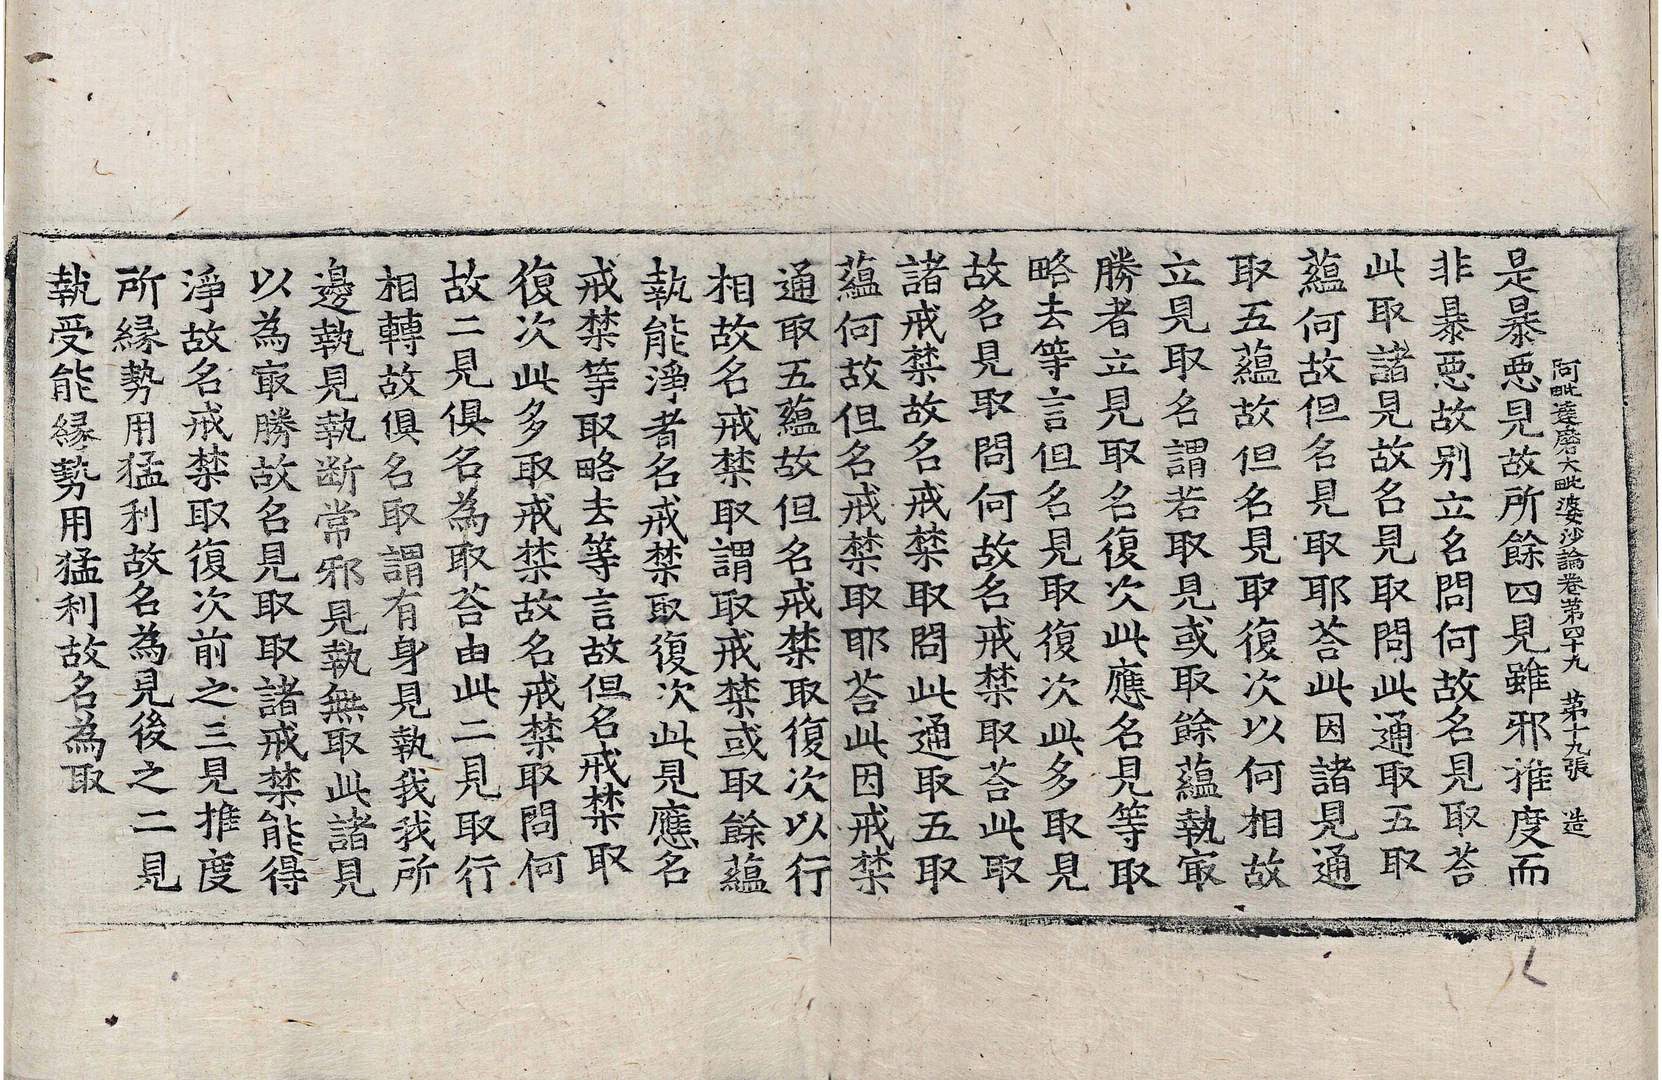 阿毗達磨大毗婆沙論卷第四十九 第十九張 造
是暴惡見故所餘四見雖邪推度而
非暴惡故别立名問何故名見取荅
此取諸見故名見取問此通取五取
蘊何故但名見取耶荅此因諸見通
取五蘊故但名見取復次以何相故
立見取名謂若取見或取餘蘊執㝡
勝者立見取名復次此應名見等取
略去等言但名見取復次此多取見
故名見取問何故名戒禁取荅此取
諸戒禁故名戒禁取問此通取五取
蘊何故但名戒禁取耶荅此因戒禁
通取五蘊故但名戒禁取復次以行
相故名戒禁取謂取戒禁或取餘蘊
執能淨者名戒禁取復次此見應名
戒禁等取略去等言故但名戒禁取
復次此多取戒禁故名戒禁取問何
故二見俱名為取荅由此二見取行
相轉故俱名取謂有身見執我我所
邊執見執断常邪見執無取此諸見
以為㝡勝故名見取取諸戒禁能得
淨故名戒禁取復次前之三見推度
所縁勢用猛利故名為見後之二見
執受能縁勢用猛利故名為取